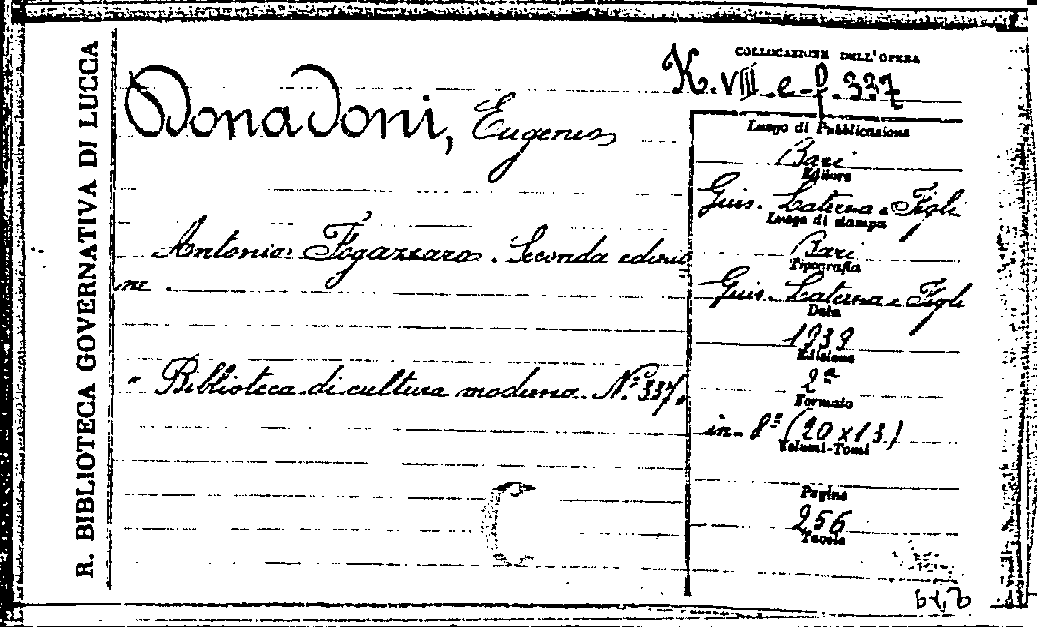 R. BIBLIOTECA GOVERNATIVA DI LUCCA
COLLOCAZIONE DELL'OPERA
K. VIII. e-f. 337
Donadoni, Eugenio
Antonio Fogazzaro. Seconda edizio
ne.
" Biblioteca di cultura moderna. N.º 337"
Luogo di Pubblicazione
Bari
Editore
Gius. Laterza e Figli
Luogo di stampa
Bari
Tipografia
Gius. Laterza e Figli
Data
1939
Edizione
2ª
Formato
in-8º (20 x 13)
Volumi-Tomi
Pagine
256
Tavole